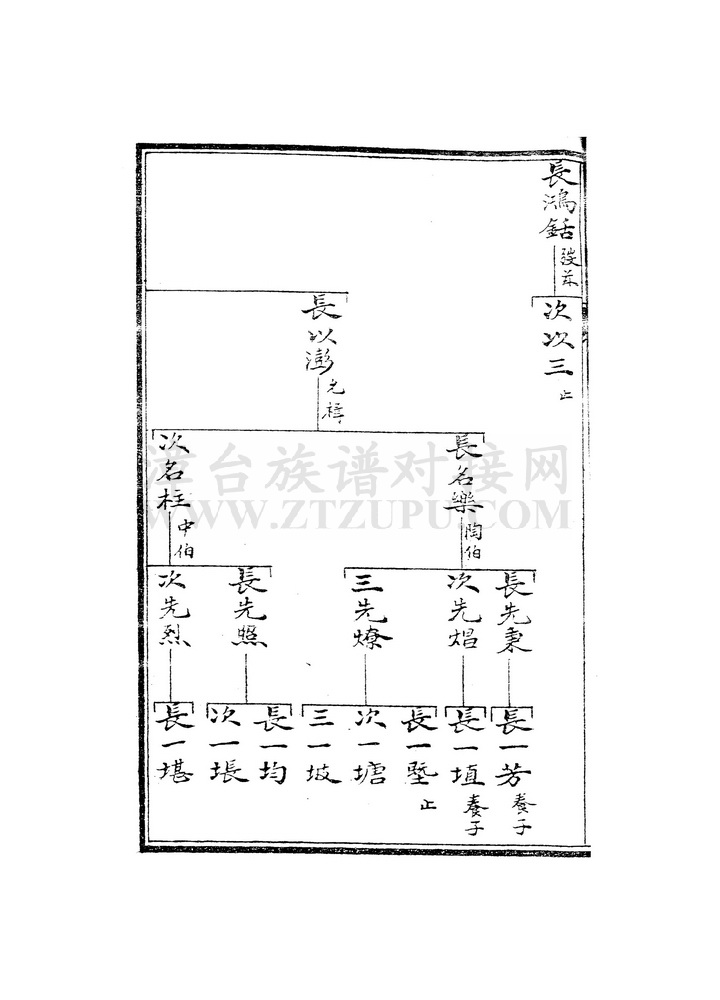 長鴻銛
次以三
止
長以澎
長名樂
陶伯
次名柱
中伯
長先秉
次先焻
三先燎
長先照
次先烈
長一芳
養子
長一埴
養子
長一壂
止
次一塘
三一坡
長一均
次一垠
長一堪
漳台族谱对接网
WWW.ZTZUPU.COM